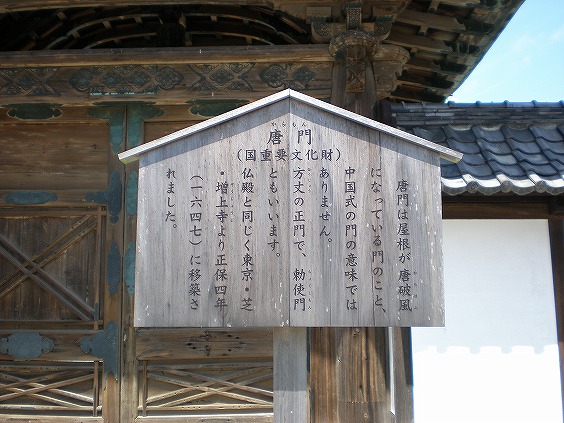 からもん
唐門
(国重要文化財)
唐門は屋根が唐破風
になっている門のこと、
中国式の門の意味では
ありません。
方丈の正門で、勅使門
ともいいます。
仏殿と同じく東京・芝
・増上寺より正保四年
(一六四七)に移築さ
れました。